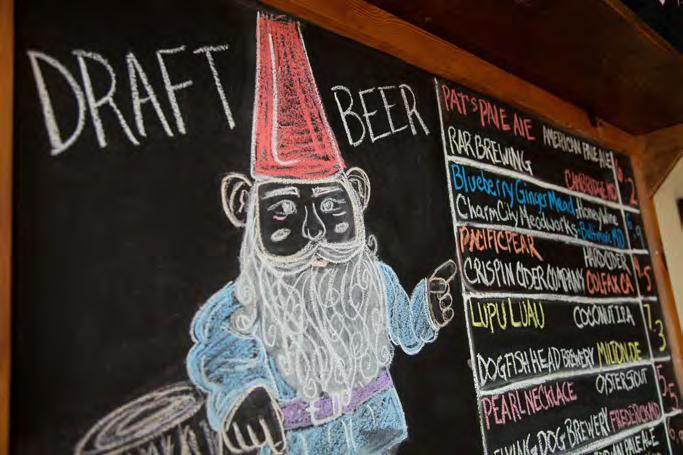 DRAFT BEER
PAT'S PALE ALE AMERICAN PALE ALE
RAR BREWING CAMBRIDGE MD
Blueberry Ginger Mead, Honey Wine
Charm City Meadworks, Baltimore, MD 6.9
PACIFIC PEAR HARD CIDER
CRISPIN CIDER COMPANY COLFAX CA
LUPU LUAU COCONUT IPA 7.3
DOGFISH HEAD BREWERY MILTON, DE
PEARL NECKLACE OYSTER STOUT 5.5
FLYING DOG BREWERY FREDERICK MD
BROWN PALE ALE